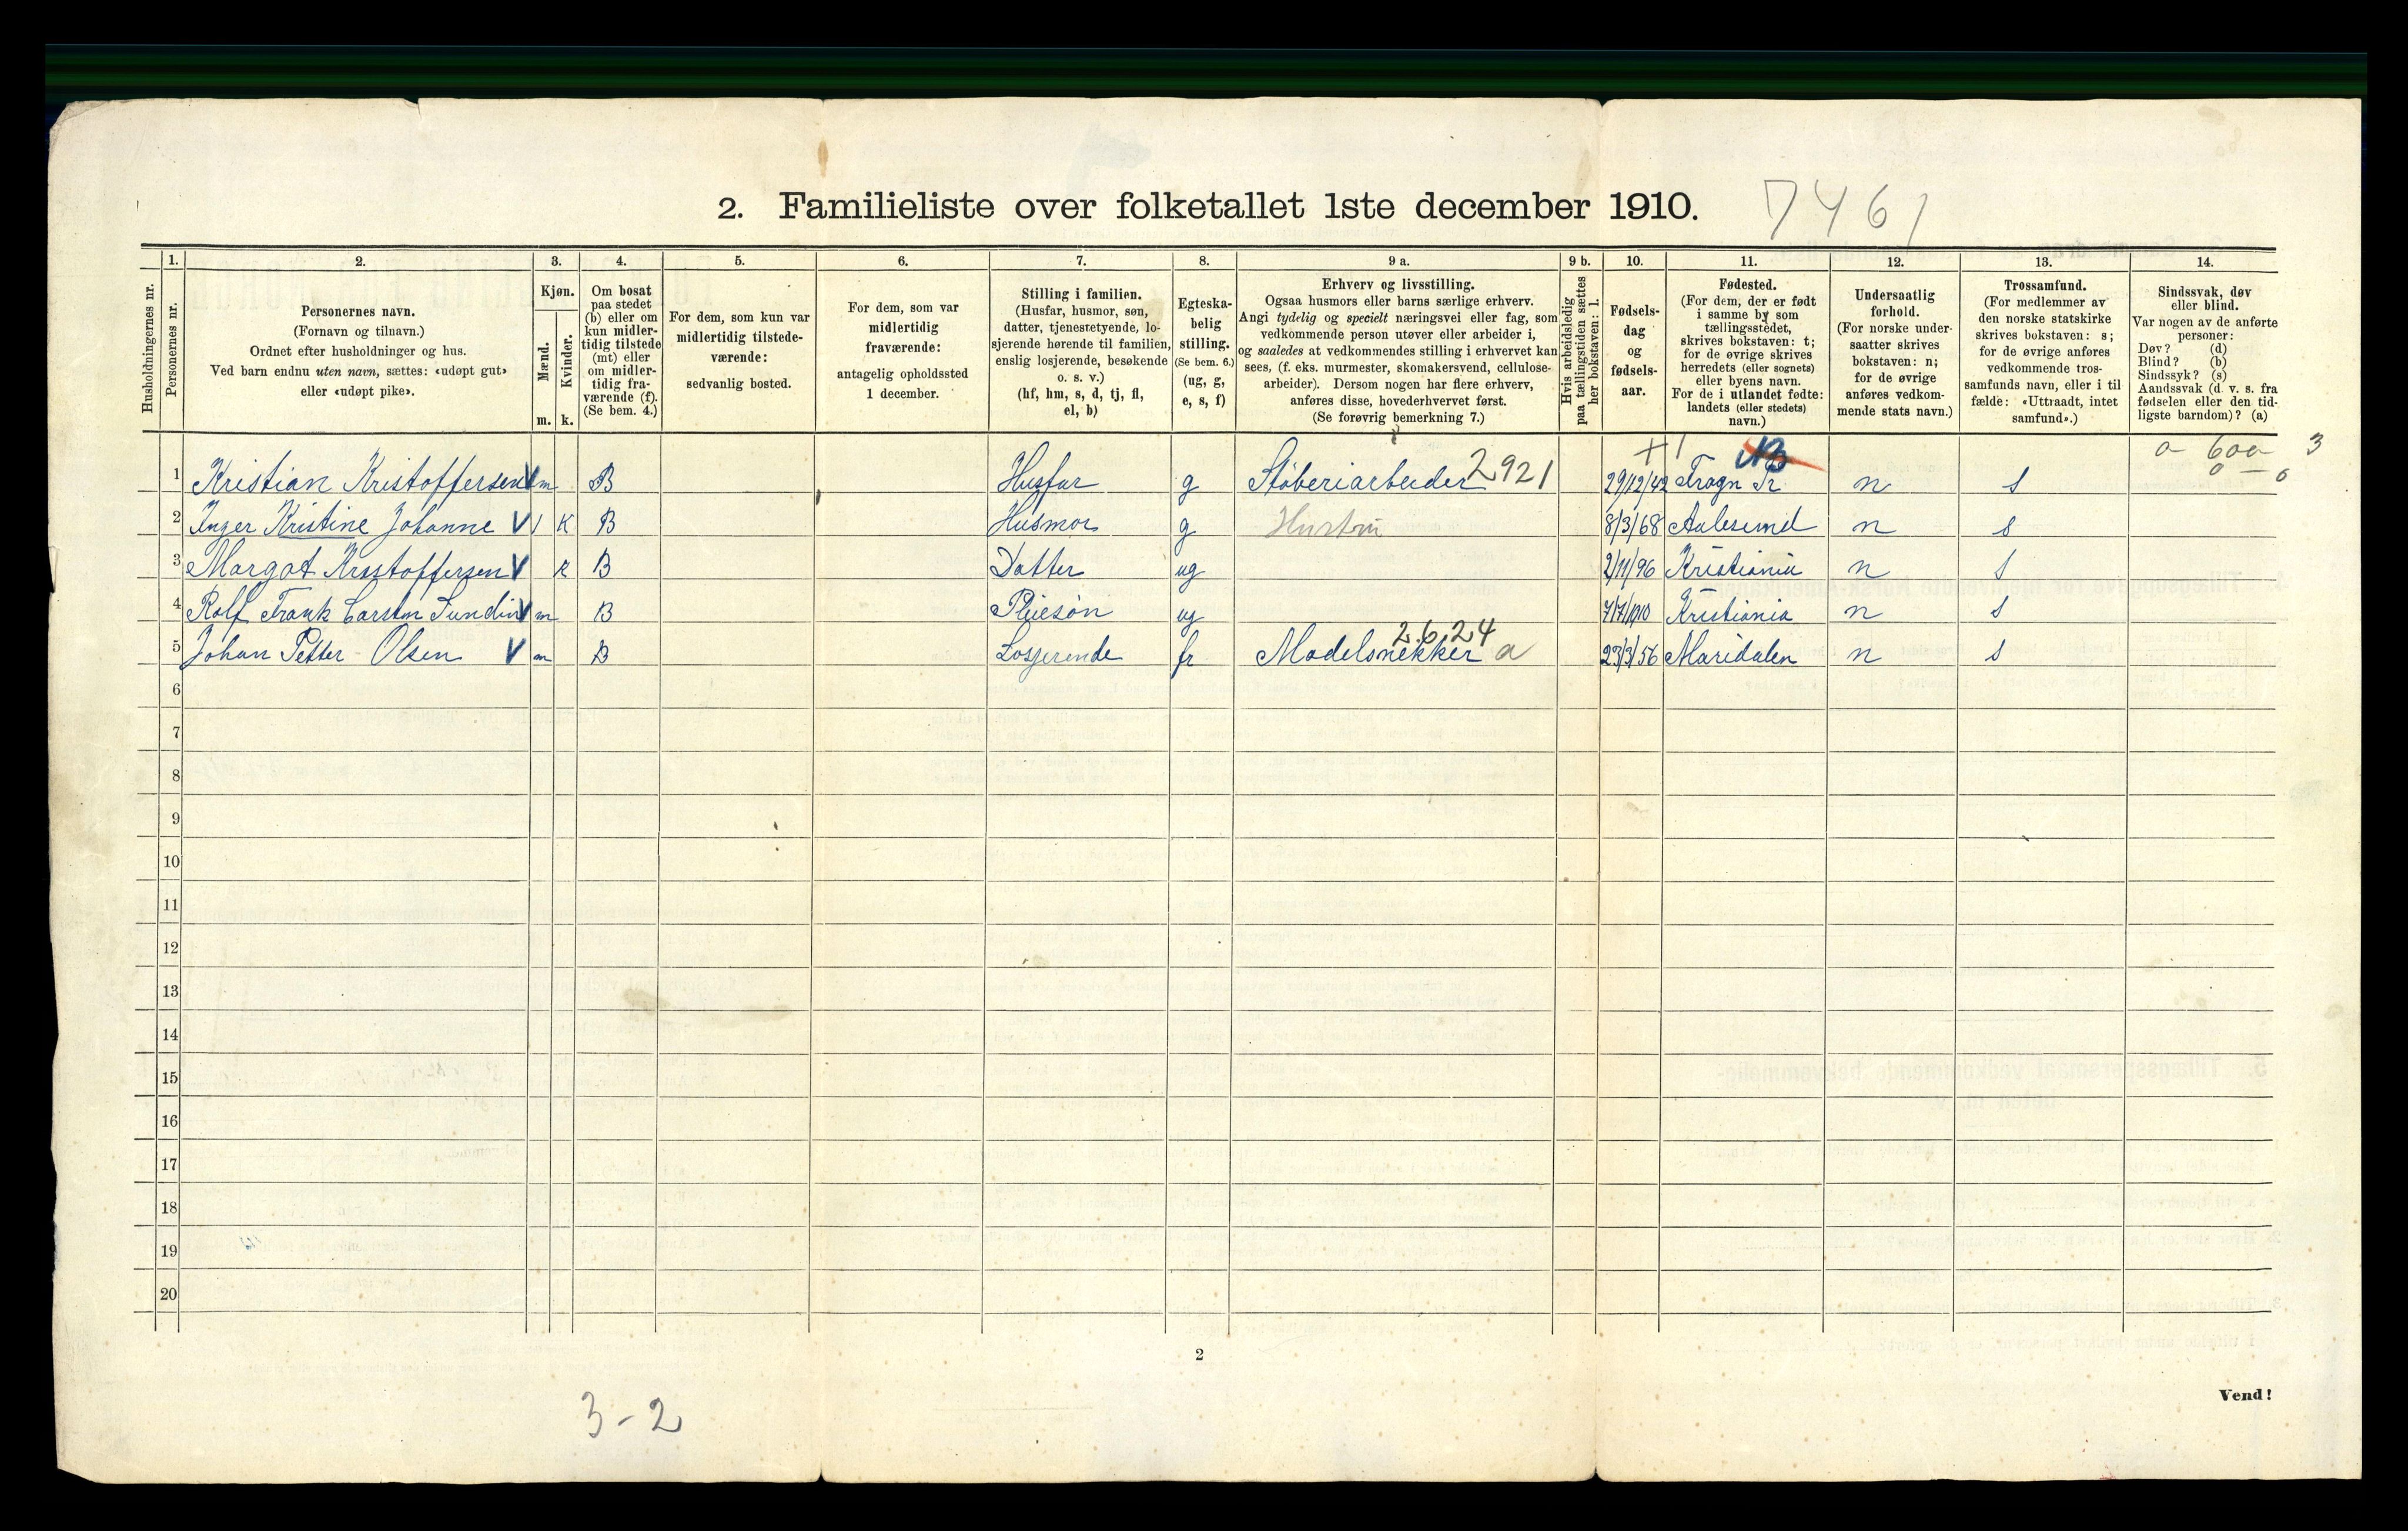 2. Familieliste over folketallet 1ste december 1910. 7461
Husholdningernes nr.
1.
Personernes nr.
2.
Personernes navn.
(Fornavn og tilnavn.)
Ordnet efter husholdninger og hus.
Ved barn endnu uten navn, sættes: «udøpt gut»
eller «udøpt pike».
3.
Kjøn.
Mænd.
m.
Kvinder.
k.
4.
Om bosat
paa stedet
(b) eller om
kun midler-
tidig tilstede
(mt) eller
om midler-
tidig fra-
værende (f).
(Se bem. 4.)
5.
For dem, som kun var
midlertidig tilstede-
værende:
sedvanlig bosted.
6.
For dem, som var
midlertidig
fraværende:
antagelig opholdssted
1 december.
7.
Stilling i familien.
(Husfar, husmor, søn,
datter, tjenestetyende, lo-
sjerende hørende til familien,
enslig losjerende, besøkende
o. s. v.)
(hf, hm, s, d, tj, fl,
el, b)
8.
Egteska-
belig
stilling.
(Se bem. 6.)
(ug, g,
e, s, f)
9 a.
Erhverv og livsstilling.
Ogsaa husmors eller barns særlige erhverv.
Angi tydelig og specielt næringsvei eller fag, som
vedkommende person utøver eller arbeider i,
og saaledes at vedkommendes stilling i erhvervet kan
sees, (f. eks. murmester, skomakersvend, cellulose-
arbeider). Dersom nogen har flere erhverv,
anføres disse, hovederhvervet først.
(Se forøvrig bemerkning 7.)
9 b.
Hvis arbeidsledig
paa tællingstiden sættes
her bokstaven: l.
10.
Fødsels-
dag
og
fødsels-
aar.
11.
Fødested.
(For dem, der er født
i samme by som
tællingsstedet,
skrives bokstaven: t;
for de øvrige skrives
herredets (eller sognets)
eller byens navn.
For de i utlandet fødte:
landets (eller stedets)
navn.)
12.
Undersaatlig
forhold.
(For norske under-
saatter skrives
bokstaven: n;
for de øvrige
anføres vedkom-
mende stats navn.)
13.
Trossamfund.
(For medlemmer av
den norske statskirke
skrives bokstaven: s;
for de øvrige anføres
vedkommende tros-
samfunds navn, eller i til
fælde: «Uttraadt, intet
samfund».)
14.
Sindssvak, døv
eller blind.
Var nogen av de anførte
personer:
Døv? (d)
Blind? (b)
Sindssyk? (s)
Aandssvak (d. v. s. fra
fødselen eller den tid-
ligste barndom)? (a)
0 600 3
0 — 0
1 Kristian Kristoffersen V m B Husfar g Støberiarbeider 2921 29/12/42 Frogn Pr. n s
2 Inger Kristine Johanne V k B Husmor g Hustru 8/3/68 Aalesund n s
3 Margot Kristoffersen V k B Datter ug 2/11/96 Kristiania n s
4 Rolf Frank Carsten Sundin V m B Pleiesøn ug 7/7/1910 Kristiania n s
5 Johan Petter Olsen V m B Losjerende fr Modelsnekker 2.6.24 a 23/3/56 Maridalen n s
6
7
8
9
10
11
12
13
14
15
16
17
18
19
20
2
Vend!
3-2